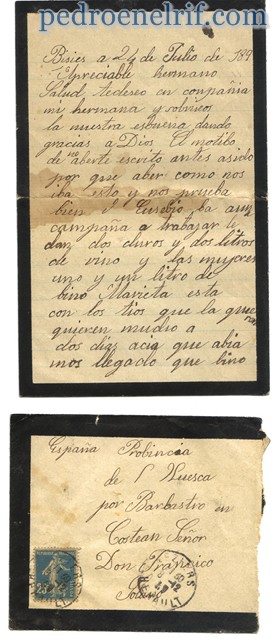 pedroenelrif.com
Bisies a 24 de Julio de 184
Apreciable hermano
Salud te deseo en conpañia
mi hermana y sobrinos
la nuestra es buena dando
gracias a Dios. El motibo
de no aberte escrito antes asido
por que aber como nos
iba esto y nos prueba
bien Eusebio ba a una
campaña a trabajar le
dan dos duros y dos litros
de vino y las mujeres
uno y un litro de
bino Marieta esta
con los tios que la
quieren mucho a
dos días acia que abia
mos llegado que bino
España Probincia
de Huesca
por Barbastro en
Costean Señor
Don Francisco
Solans
25